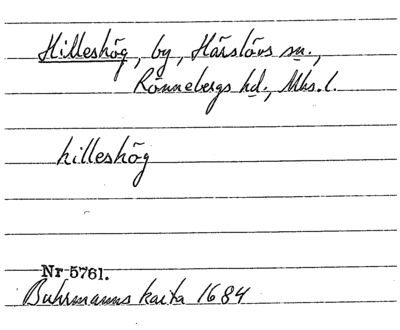 Hilleshög, by, Härslövs sn.,
Rönnebergs hd., Mhs. l.
hilleshög
Nr 5761.
Buhrmanns karta 1684